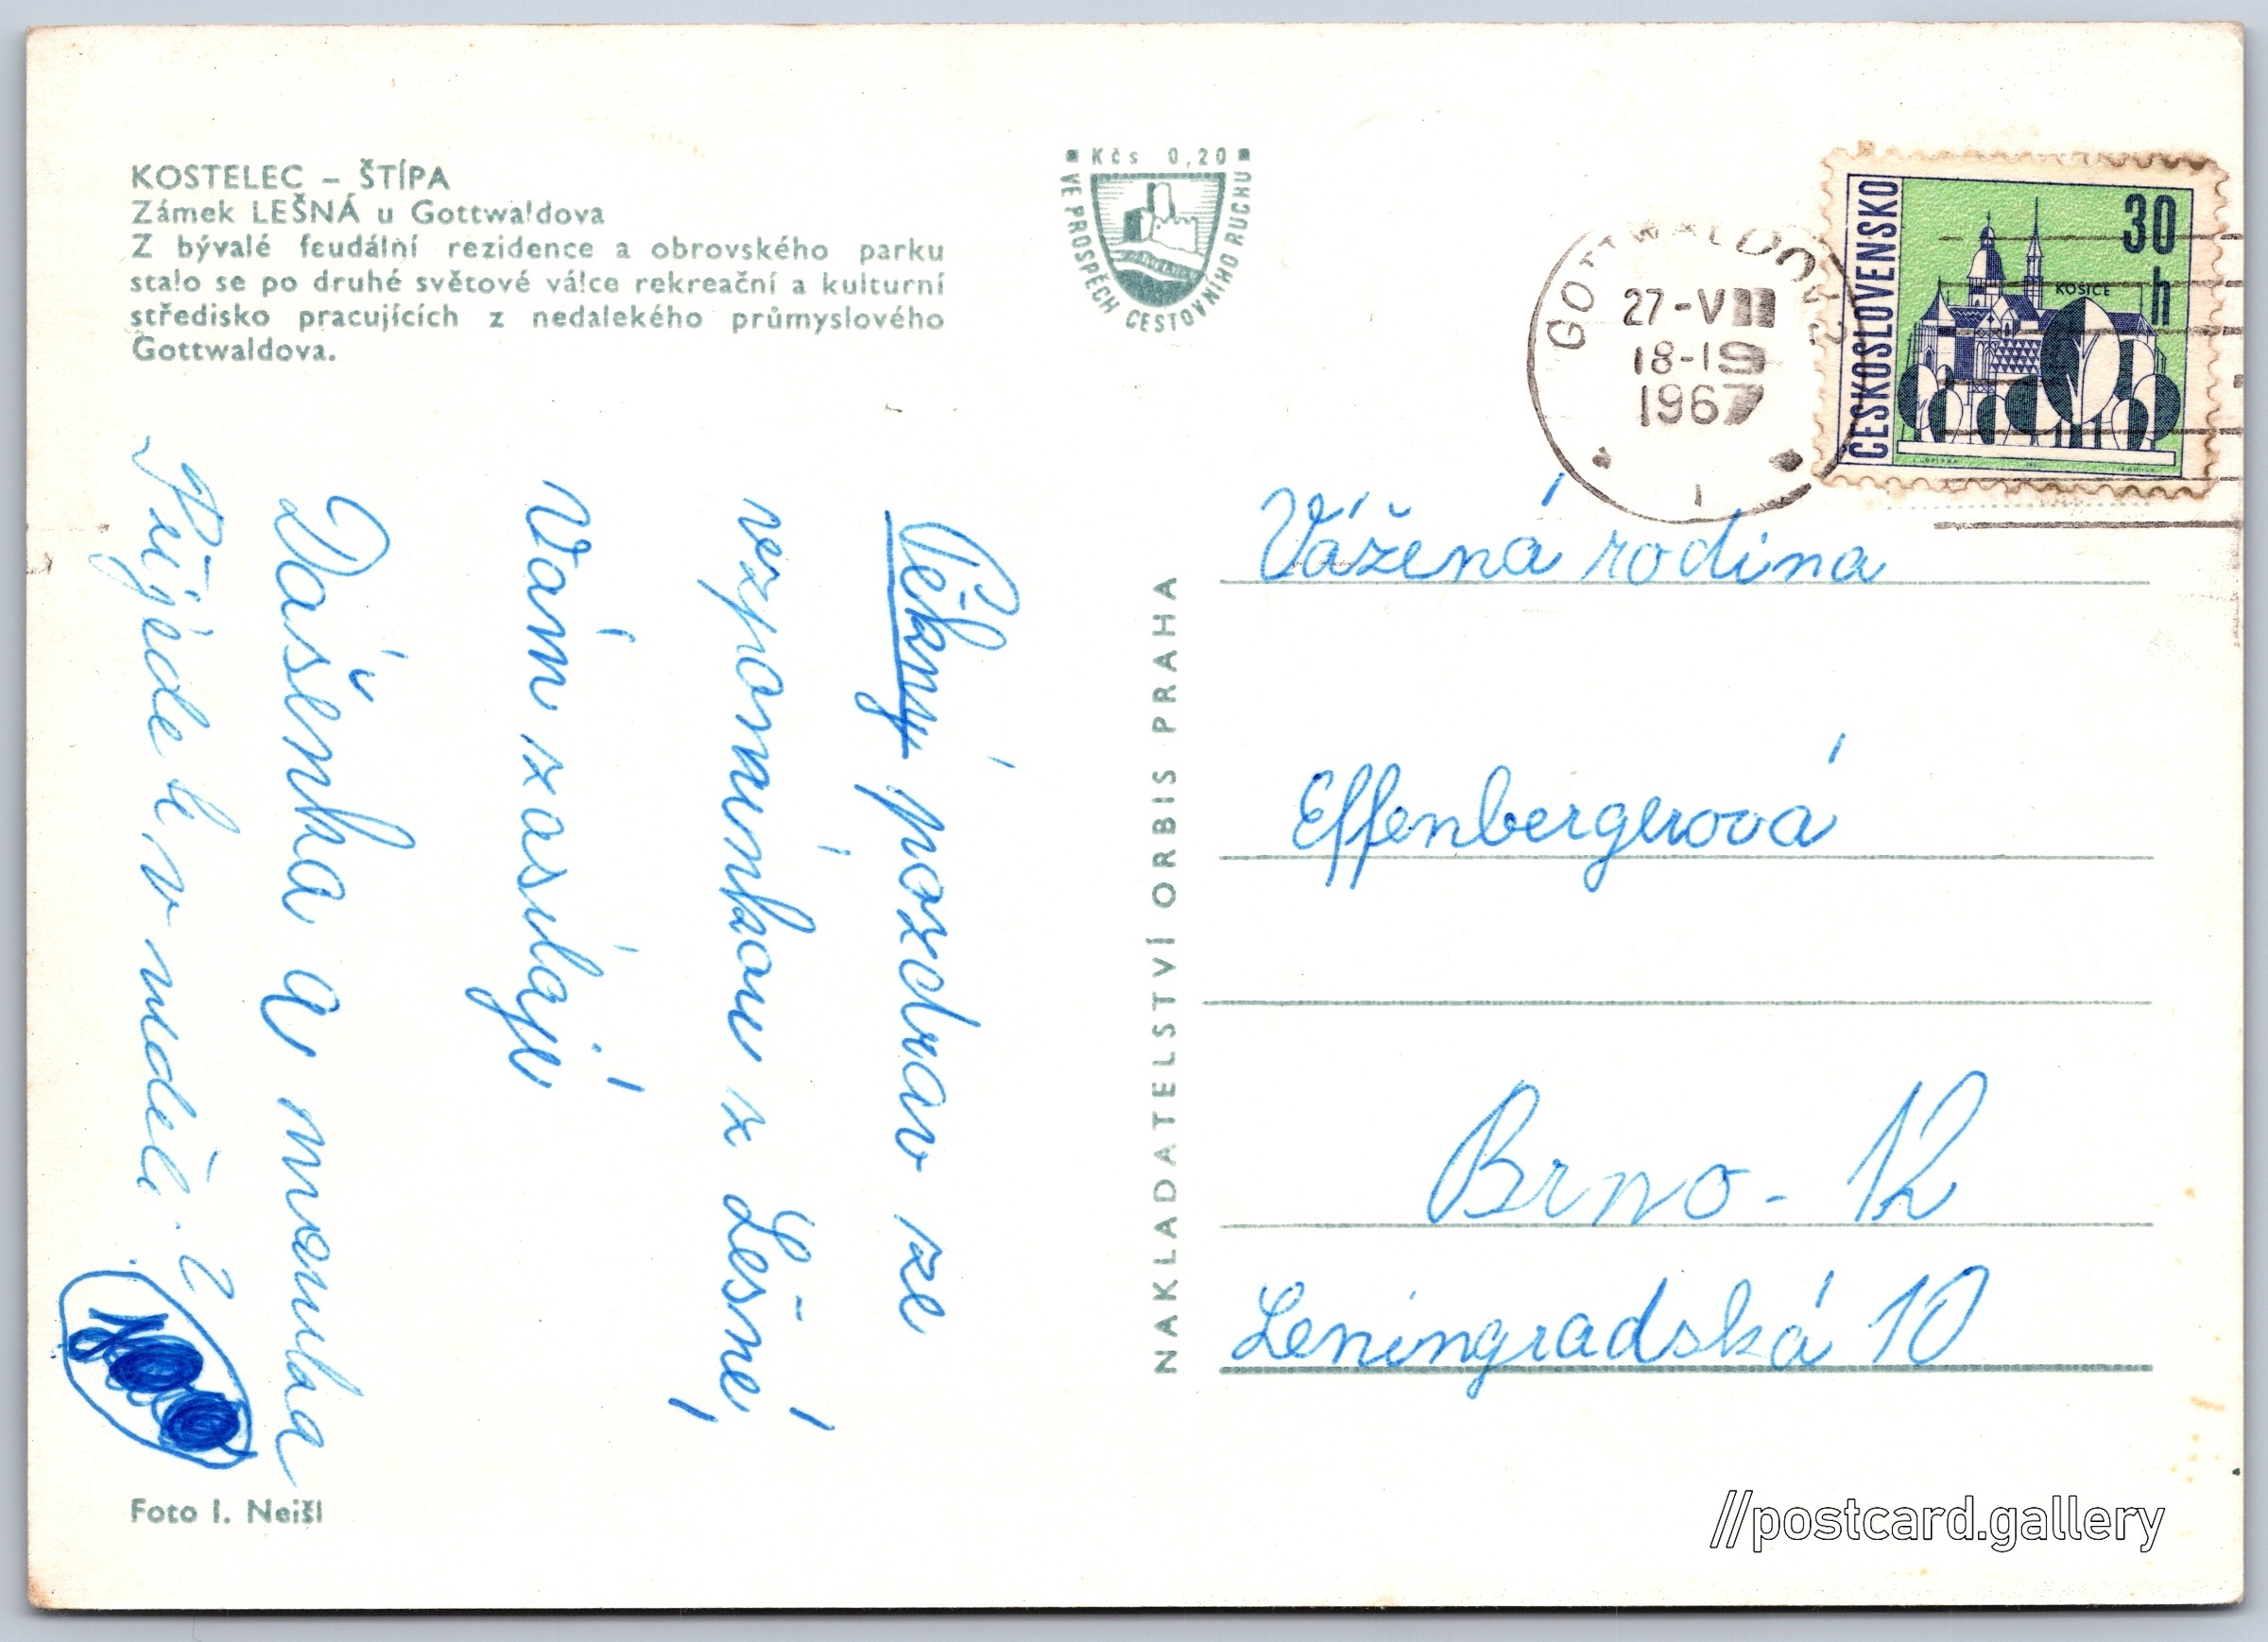 KOSTELEC – ŠTÍPA
Zámek LEŠNÁ u Gottwaldova
Z bývalé feudální rezidence a obrovského parku
stalo se po druhé světové válce rekreační a kulturní
středisko pracujících z nedalekého průmyslového
Gottwaldova.
Kčs 0,20
VE PROSPĚCH CESTOVNÍHO RUCHU
GOTTWALDOV 2
27-VII
18-19
1967
1
ČESKOSLOVENSKO
30
h
KOŠICE
Pěkný pozdrav ze
vzpomínkou z Lešné,
Vám zasílají
Dášenka a maminka
Přijede k v neděli.
NAKLADATELSTVÍ ORBIS PRAHA
Vážená rodina
Effenbergerová
Brno - 12
Leningradská 10
Foto I. Neišl
//postcard.gallery